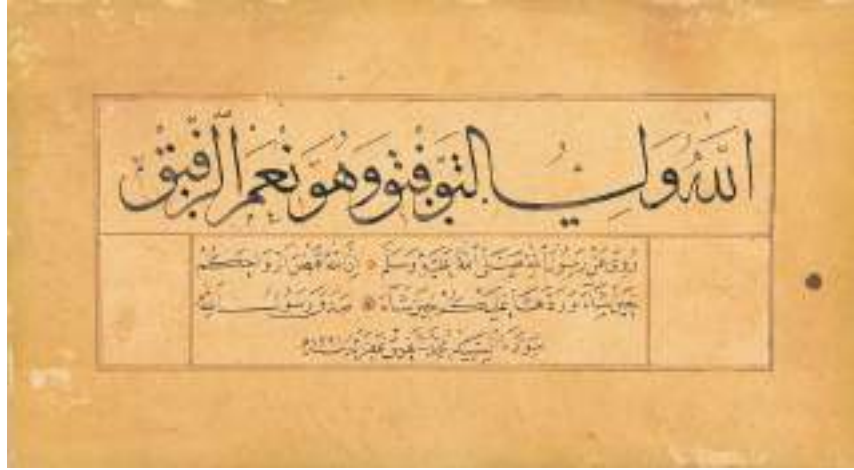 الله ولي التوفيق وهو نعم الرفيق
روي عن رسول الله صلى الله عليه وسلم إن الله قبض أرواحكم
حين شاء وردها عليكم حين شاء صدق رسول الله